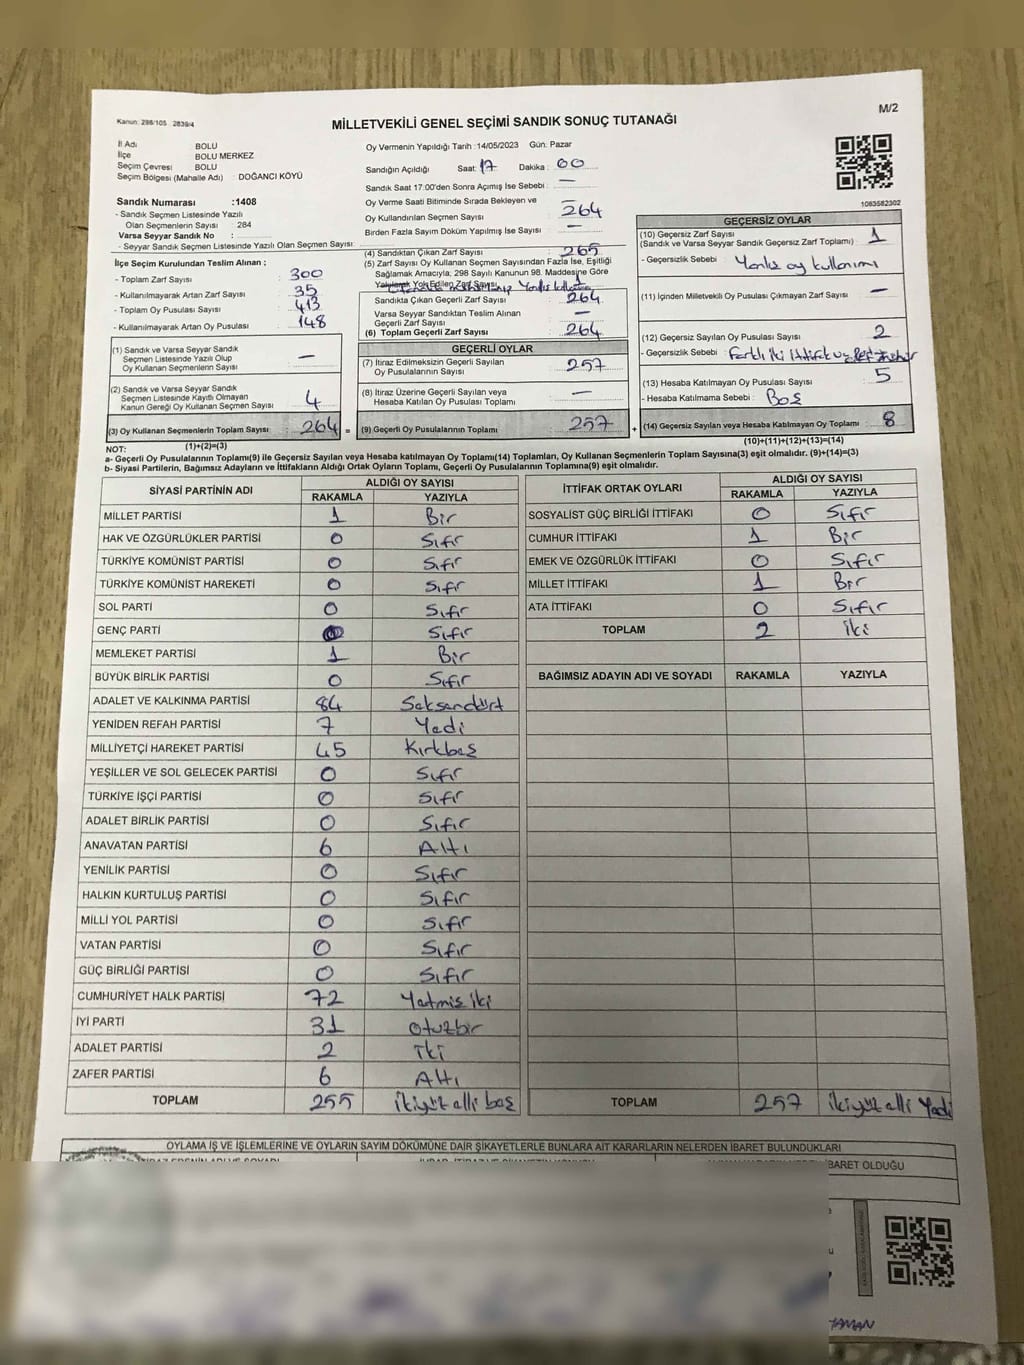 Kanun: 298/105 2839/4
M/2
MİLLETVEKİLİ GENEL SEÇİMİ SANDIK SONUÇ TUTANAĞI
İl Adı BOLU
İlçe BOLU MERKEZ
Seçim Çevresi BOLU
Seçim Bölgesi (Mahalle Adı) : DOĞANCI KÖYÜ
Sandık Numarası :1408
- Sandık Seçmen Listesinde Yazılı
Olan Seçmenlerin Sayısı : 284
Varsa Seyyar Sandık No :
- Seyyar Sandık Seçmen Listesinde Yazılı Olan Seçmen Sayısı:
İlçe Seçim Kurulundan Teslim Alınan ;
- Toplam Zarf Sayısı : 300
- Kullanılmayarak Artan Zarf Sayısı : 35
- Toplam Oy Pusulası : 413
- Kullanılmayarak Artan Oy Pusulası : 148
(1) Sandık ve Varsa Seyyar Sandık
Seçmen Listesinde Yazılı Olup
Oy Kullanan Seçmenlerin Sayısı : —
(2) Sandık ve Varsa Seyyar Sandık
Seçmen Listesinde Kayıtlı Olmayan
Kanun Gereği Oy Kullanan Seçmen Sayısı : 4
(3) Oy Kullanan Seçmenlerin Toplam Sayısı : 264 =
(1)+(2)=(3)
Oy Vermenin Yapıldığı Tarih :14/05/2023 Gün: Pazar
Sandığın Açıldığı Saat: 17 Dakika : 00
Sandık Saat 17:00'den Sonra Açılmış İse Sebebi : —
Oy Verme Saati Bitiminde Sırada Bekleyen ve
Oy Kullandırılan Seçmen Sayısı : 264
Birden Fazla Sayım Döküm Yapılmış İse Sayısı : —
(4) Sandıktan Çıkan Zarf Sayısı : 265
(5) Zarf Sayısı Oy Kullanan Seçmen Sayısından Fazla İse, Eşitliği
Sağlamak Amacıyla; 298 Sayılı Kanunun 98. Maddesine Göre
Yakılarak Yok Edilen Zarf Sayısı
Sandıkta Çıkan Geçerli Zarf Sayısı : 264
Varsa Seyyar Sandıktan Teslim Alınan
Geçerli Zarf Sayısı : —
(6) Toplam Geçerli Zarf Sayısı : 264
GEÇERLİ OYLAR
(7) İtiraz Edilmeksizin Geçerli Sayılan
Oy Pusulalarının Sayısı : 257
(8) İtiraz Üzerine Geçerli Sayılan veya
Hesaba Katılan Oy Pusulası Toplamı : —
(9) Geçerli Oy Pusulalarının Toplamı : 257 +
1083582302
GEÇERSİZ OYLAR
(10) Geçersiz Zarf Sayısı
(Sandık ve Varsa Seyyar Sandık Geçersiz Zarf Toplamı) : 1
- Geçersizlik Sebebi : Yanlış oy kullanımı
(11) İçinden Milletvekili Oy Pusulası Çıkmayan Zarf Sayısı : —
(12) Geçersiz Sayılan Oy Pusulası Sayısı : 2
- Geçersizlik Sebebi : Farklı iki ittifak
(13) Hesaba Katılmayan Oy Pusulası Sayısı : 5
- Hesaba Katılmama Sebebi : Boş
(14) Geçersiz Sayılan veya Hesaba Katılmayan Oy Toplamı : 8
(10)+(11)+(12)+(13)=(14)
NOT:
a- Geçerli Oy Pusulalarının Toplamı(9) ile Geçersiz Sayılan veya Hesaba katılmayan Oy Toplamı(14) Toplamları, Oy Kullanan Seçmenlerin Toplam Sayısına(3) eşit olmalıdır. (9)+(14)=(3)
b- Siyasi Partilerin, Bağımsız Adayların ve İttifakların Aldığı Ortak Oyların Toplamı, Geçerli Oy Pusulalarının Toplamına(9) eşit olmalıdır.
SİYASİ PARTİNİN ADI ALDIĞI OY SAYISI
RAKAMLA YAZIYLA
MİLLET PARTİSİ 1 Bir
HAK VE ÖZGÜRLÜKLER PARTİSİ 0 Sıfır
TÜRKİYE KOMÜNİST PARTİSİ 0 Sıfır
TÜRKİYE KOMÜNİST HAREKETİ 0 Sıfır
SOL PARTİ 0 Sıfır
GENÇ PARTİ 0 Sıfır
MEMLEKET PARTİSİ 1 Bir
BÜYÜK BİRLİK PARTİSİ 0 Sıfır
ADALET VE KALKINMA PARTİSİ 84 Seksendört
YENİDEN REFAH PARTİSİ 7 Yedi
MİLLİYETÇİ HAREKET PARTİSİ 45 Kırkbeş
YEŞİLLER VE SOL GELECEK PARTİSİ 0 Sıfır
TÜRKİYE İŞÇİ PARTİSİ 0 Sıfır
ADALET BİRLİK PARTİSİ 0 Sıfır
ANAVATAN PARTİSİ 6 Altı
YENİLİK PARTİSİ 0 Sıfır
HALKIN KURTULUŞ PARTİSİ 0 Sıfır
MİLLİ YOL PARTİSİ 0 Sıfır
VATAN PARTİSİ 0 Sıfır
GÜÇ BİRLİĞİ PARTİSİ 0 Sıfır
CUMHURİYET HALK PARTİSİ 72 Yetmiş iki
İYİ PARTİ 31 Otuzbir
ADALET PARTİSİ 2 İki
ZAFER PARTİSİ 6 Altı
TOPLAM 255 ikiyüz elli beş
İTTİFAK ORTAK OYLARI ALDIĞI OY SAYISI
RAKAMLA YAZIYLA
SOSYALİST GÜÇ BİRLİĞİ İTTİFAKI 0 Sıfır
CUMHUR İTTİFAKI 1 Bir
EMEK VE ÖZGÜRLÜK İTTİFAKI 0 Sıfır
MİLLET İTTİFAKI 1 Bir
ATA İTTİFAKI 0 Sıfır
TOPLAM 2 iki
BAĞIMSIZ ADAYIN ADI VE SOYADI RAKAMLA YAZIYLA
TOPLAM 257 ikiyüz elli Yedi
OYLAMA İŞ VE İŞLEMLERİNE VE OYLARIN SAYIM DÖKÜMÜNE DAİR ŞİKAYETLERLE BUNLARA AİT KARARLARIN NELERDEN İBARET BULUNDUKLARI
BARET OLDUĞU